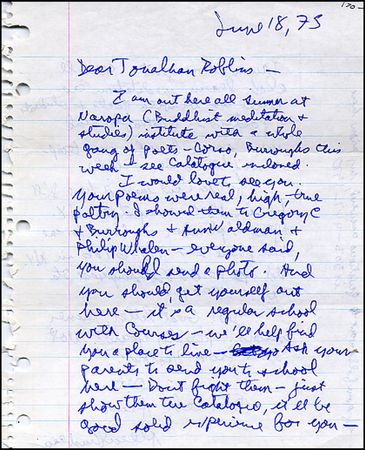 170-
June 18, 75
Dear Jonathan Robbins —
I am out here all summer at
Naropa (Buddhist meditation &
studies) institute with a whole
gang of poets — Corso, Burroughs this
week — see Catalogue inclosed.
I would love to see you.
Your poems were real, high, true
poetry. I showed them to Gregory C
& Burroughs & Anne Waldman &
Philip Whalen — everyone said,
you should send a photo. And
you should get yourself out
here — it is a regular school
with Courses — we'll help find
you a place to live — Ask your
parents to send you to school
here — Dont fight them — just
show them the Catalogue, it'll be
good solid experience for you —